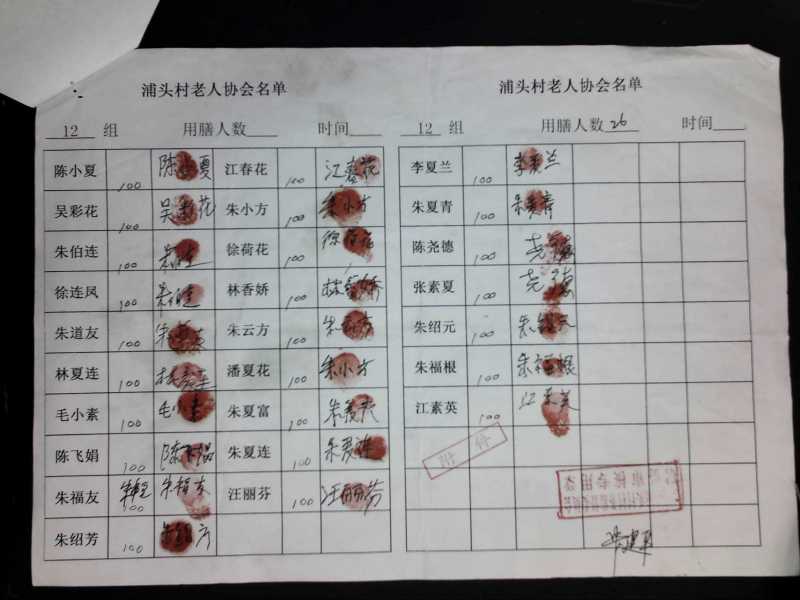 浦头村老人协会名单
12 组 用膳人数 时间
陈小夏 100 陈小夏 江春花 100 江春花
吴彩花 100 吴彩花 朱小方 100 朱小方
朱伯连 100 徐荷花 100 徐荷花
徐连凤 100 林香娇 100 林香娇
朱道友 100 朱云方 100
林夏连 100 潘夏花 100 朱小方
毛小素 100 毛小素 朱夏富 100 朱夏富
陈飞娟 100 陈飞娟 朱夏连 100 朱夏连
朱福友 100 朱福友 汪丽芬 100 汪丽芬
朱绍芳 100
浦头村老人协会名单
12 组 用膳人数 26 时间
李夏兰 100 李夏兰
朱夏青 100 朱夏青
陈尧德 100 尧德
张素夏 100 尧德
朱绍元 100 朱绍元
朱福根 100 朱福根
江素英 100 江素英
附件